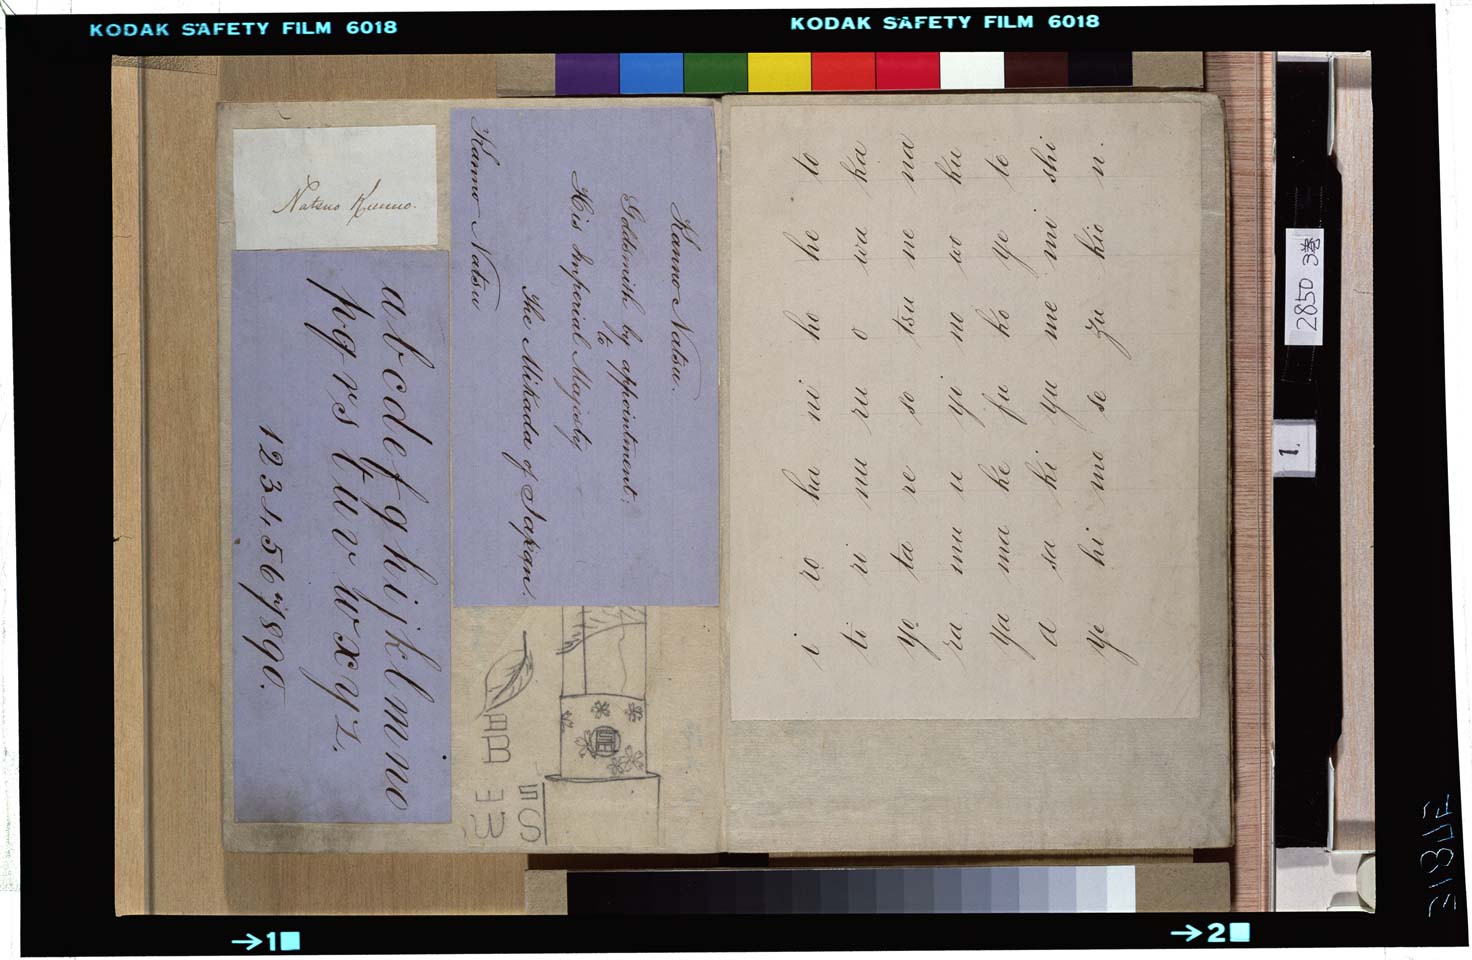 KODAK SAFETY FILM 6018
KODAK SAFETY FILM 6018
Natsuo Kunno.
a b c d e f g h i j k l m n o
p q r s t u v w x y z.
1 2 3 4 5 6 7 8 9 0.
Kanno Natsu.
Goldsmith by appointment;
to
His Imperial Majesty
The Mikada of Japan.
Kanno Natsu
i ro ha ni ho he to
ti ri nu ru o wa ka
yo ta re so tsu ne na
ra mu u yi no wo ku
ya ma ke fu ko ye te
a sa ki yu me mi shi
ye hi mo se zu kio n.
2850 3巻
1.
→1
→2